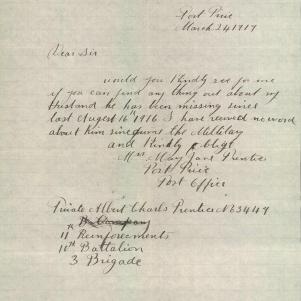 Port Pirie
March 24 1917
Dear Sir
would you Kindly see for me
if you can find any thing out about my
Husband he has been missing since
last August 16th 1916 I have received no word
about him since from the Military
and Kindly oblige
Mrs May Jane Prentice
Port Pirie
Post Office
Private Albert Charles Prentice No 3447
B Company
11th Reinforcements
10th Battalion
3 Brigade